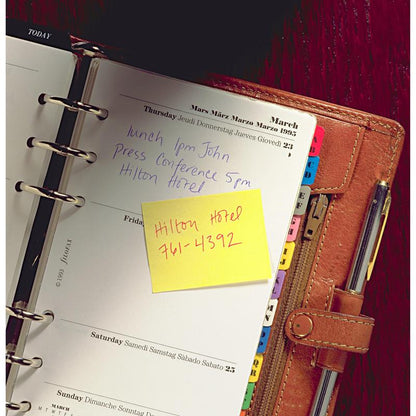 TODAY
March
Mars März Marzo Marzo 1995
Thursday Jeudi Donnerstag Jueves Giovedi 23
lunch 1pm John
Press Conference 5pm
Hilton Hotel
Friday
Hilton Hotel
761-4392
© 1993 FILOFAX
Saturday Samedi Samstag Sàbado Sabato 25
Sunday Dimanche Sonntag Domingo
MARCH
M T W T F